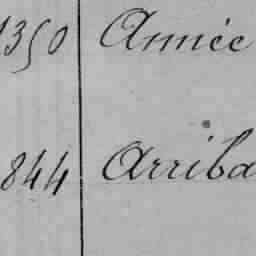 1350 Année
844 Arriba